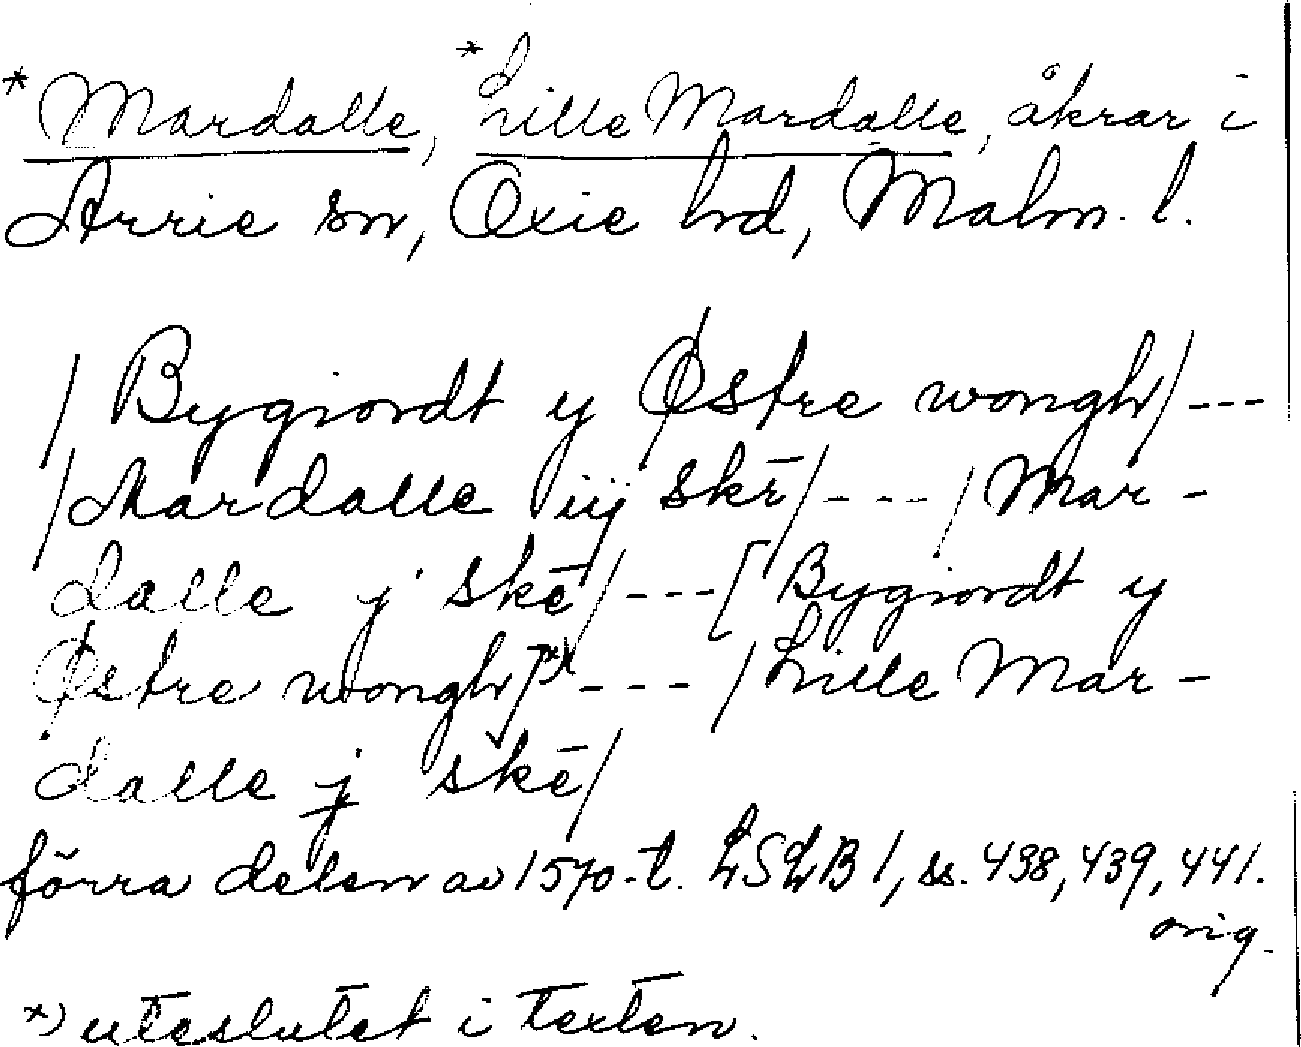 *Mardalle, *Lille Mardalle, åkrar i
Arrie sn, Oxie hd, Malm. l.
/Bygiordt y Østre wongh/---
/Mardalle iij skē/---/Mar-
dalle j skē/---[Bygiordt y
Østre wongh]*)---/Lille Mar-
dalle j skē/
förra delen av 1570-t. LSLB 1, ss. 438, 439, 441.
orig.
*) uteslutet i texten.